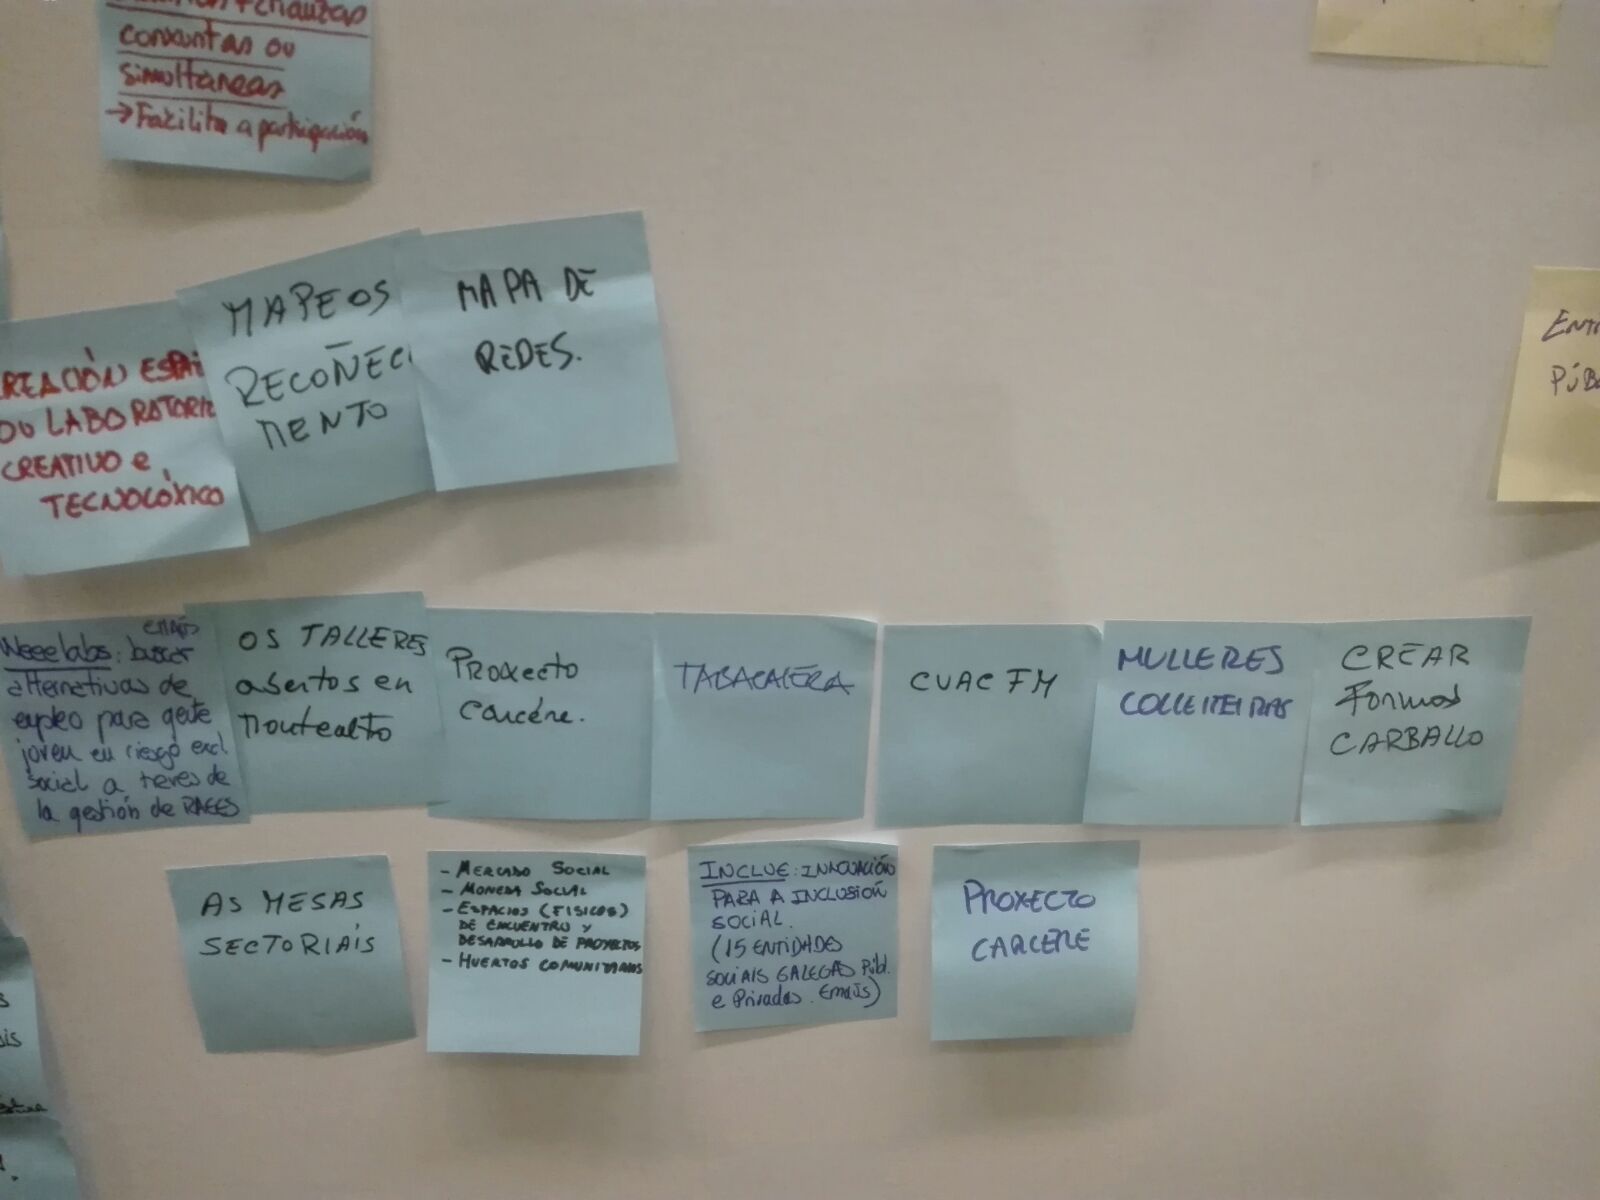 conxuntas ou
simultáneas
→ Facilita a participación
CREACIÓN
OU LABORATORIO
CREATIVO e
TECNOLÓXICO
MAPEOS
RECOÑECI
MENTO
MAPA DE
REDES.
Weeelabs: buscar
EMAÚS
alternativas de
empleo para gente
joven en riesgo excl.
social a traves de
la gestión de RAEES
OS TALLERES
abertos en
Montealto
Proxecto
Cárcere.
TABACALERA
CUAC FM
MULLERES
COLLEITEIRAS
CREAR
Formas
CARBALLO
AS MESAS
SECTORIAIS
- MERCADO SOCIAL
- MONEDA SOCIAL
- ESPACIOS (FÍSICOS)
DE ENCUENTRO y
DESARROLLO DE PROYECTOS
- HUERTOS COMUNITARIOS
INCLUE: INNOVACIÓN
PARA A INCLUSIÓN
SOCIAL.
(15 ENTIDADES
SOCIAIS GALEGAS Públ.
e Privadas. Emaús)
PROXECTO
CARCERE